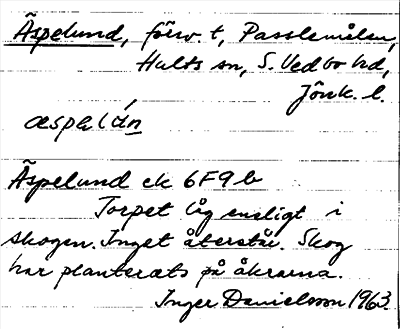 Äspelund, försv. t, Passlemålen,
Hults sn, S. Vedbo hd,
Jönk. l.
æspəlún
Äspelund ek 6F9b
Torpet låg ensligt i
skogen. Inget återstår. Skog
har planterats på åkrarna.
Inger Danielsson 1963.